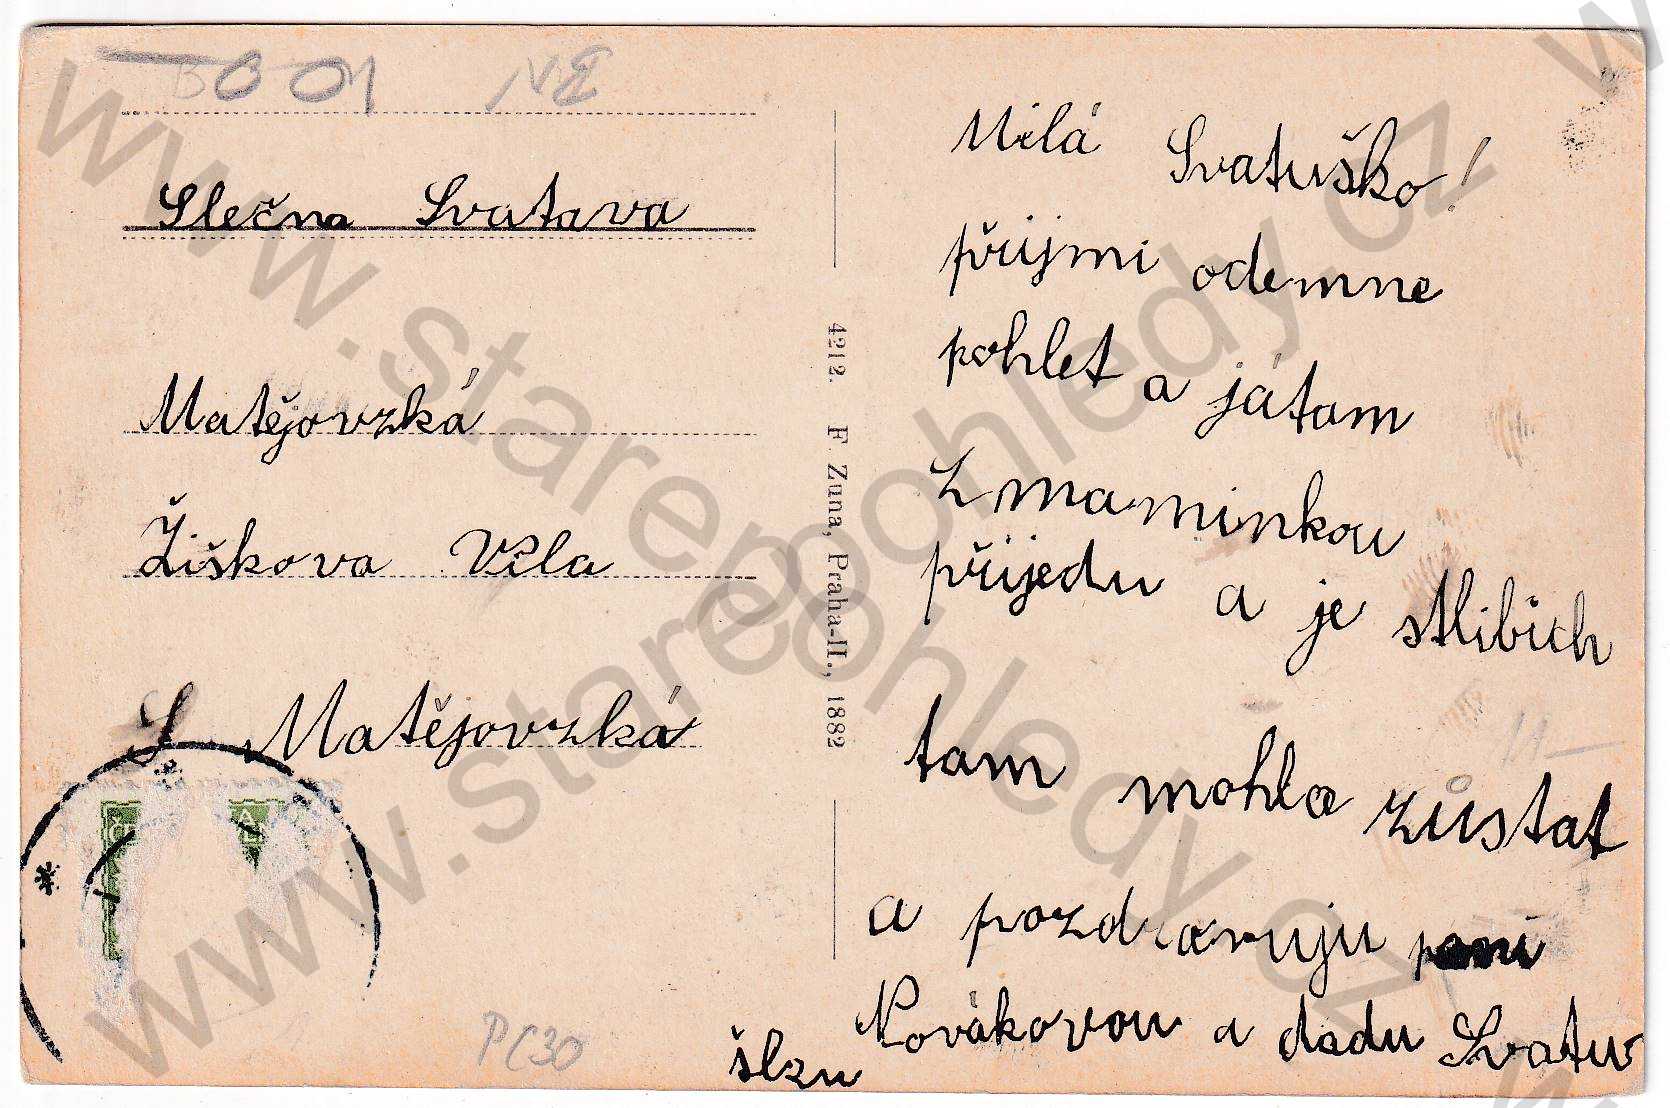 Slečna Svatava
Matějovzká
Žiškova Vila
S. Matějovzká
4212. F. Zuna, Praha-II., 1882
Milá Svatuško!
přijmi odemne
pohlet a játam
z maminkou
přijedu a je stlibich
tam mohla zůstat
a pozdravuju paní
Novákovou a dadu Svatuv
šlzu
PC30
www.starepohledy.cz
www.starepohledy.cz